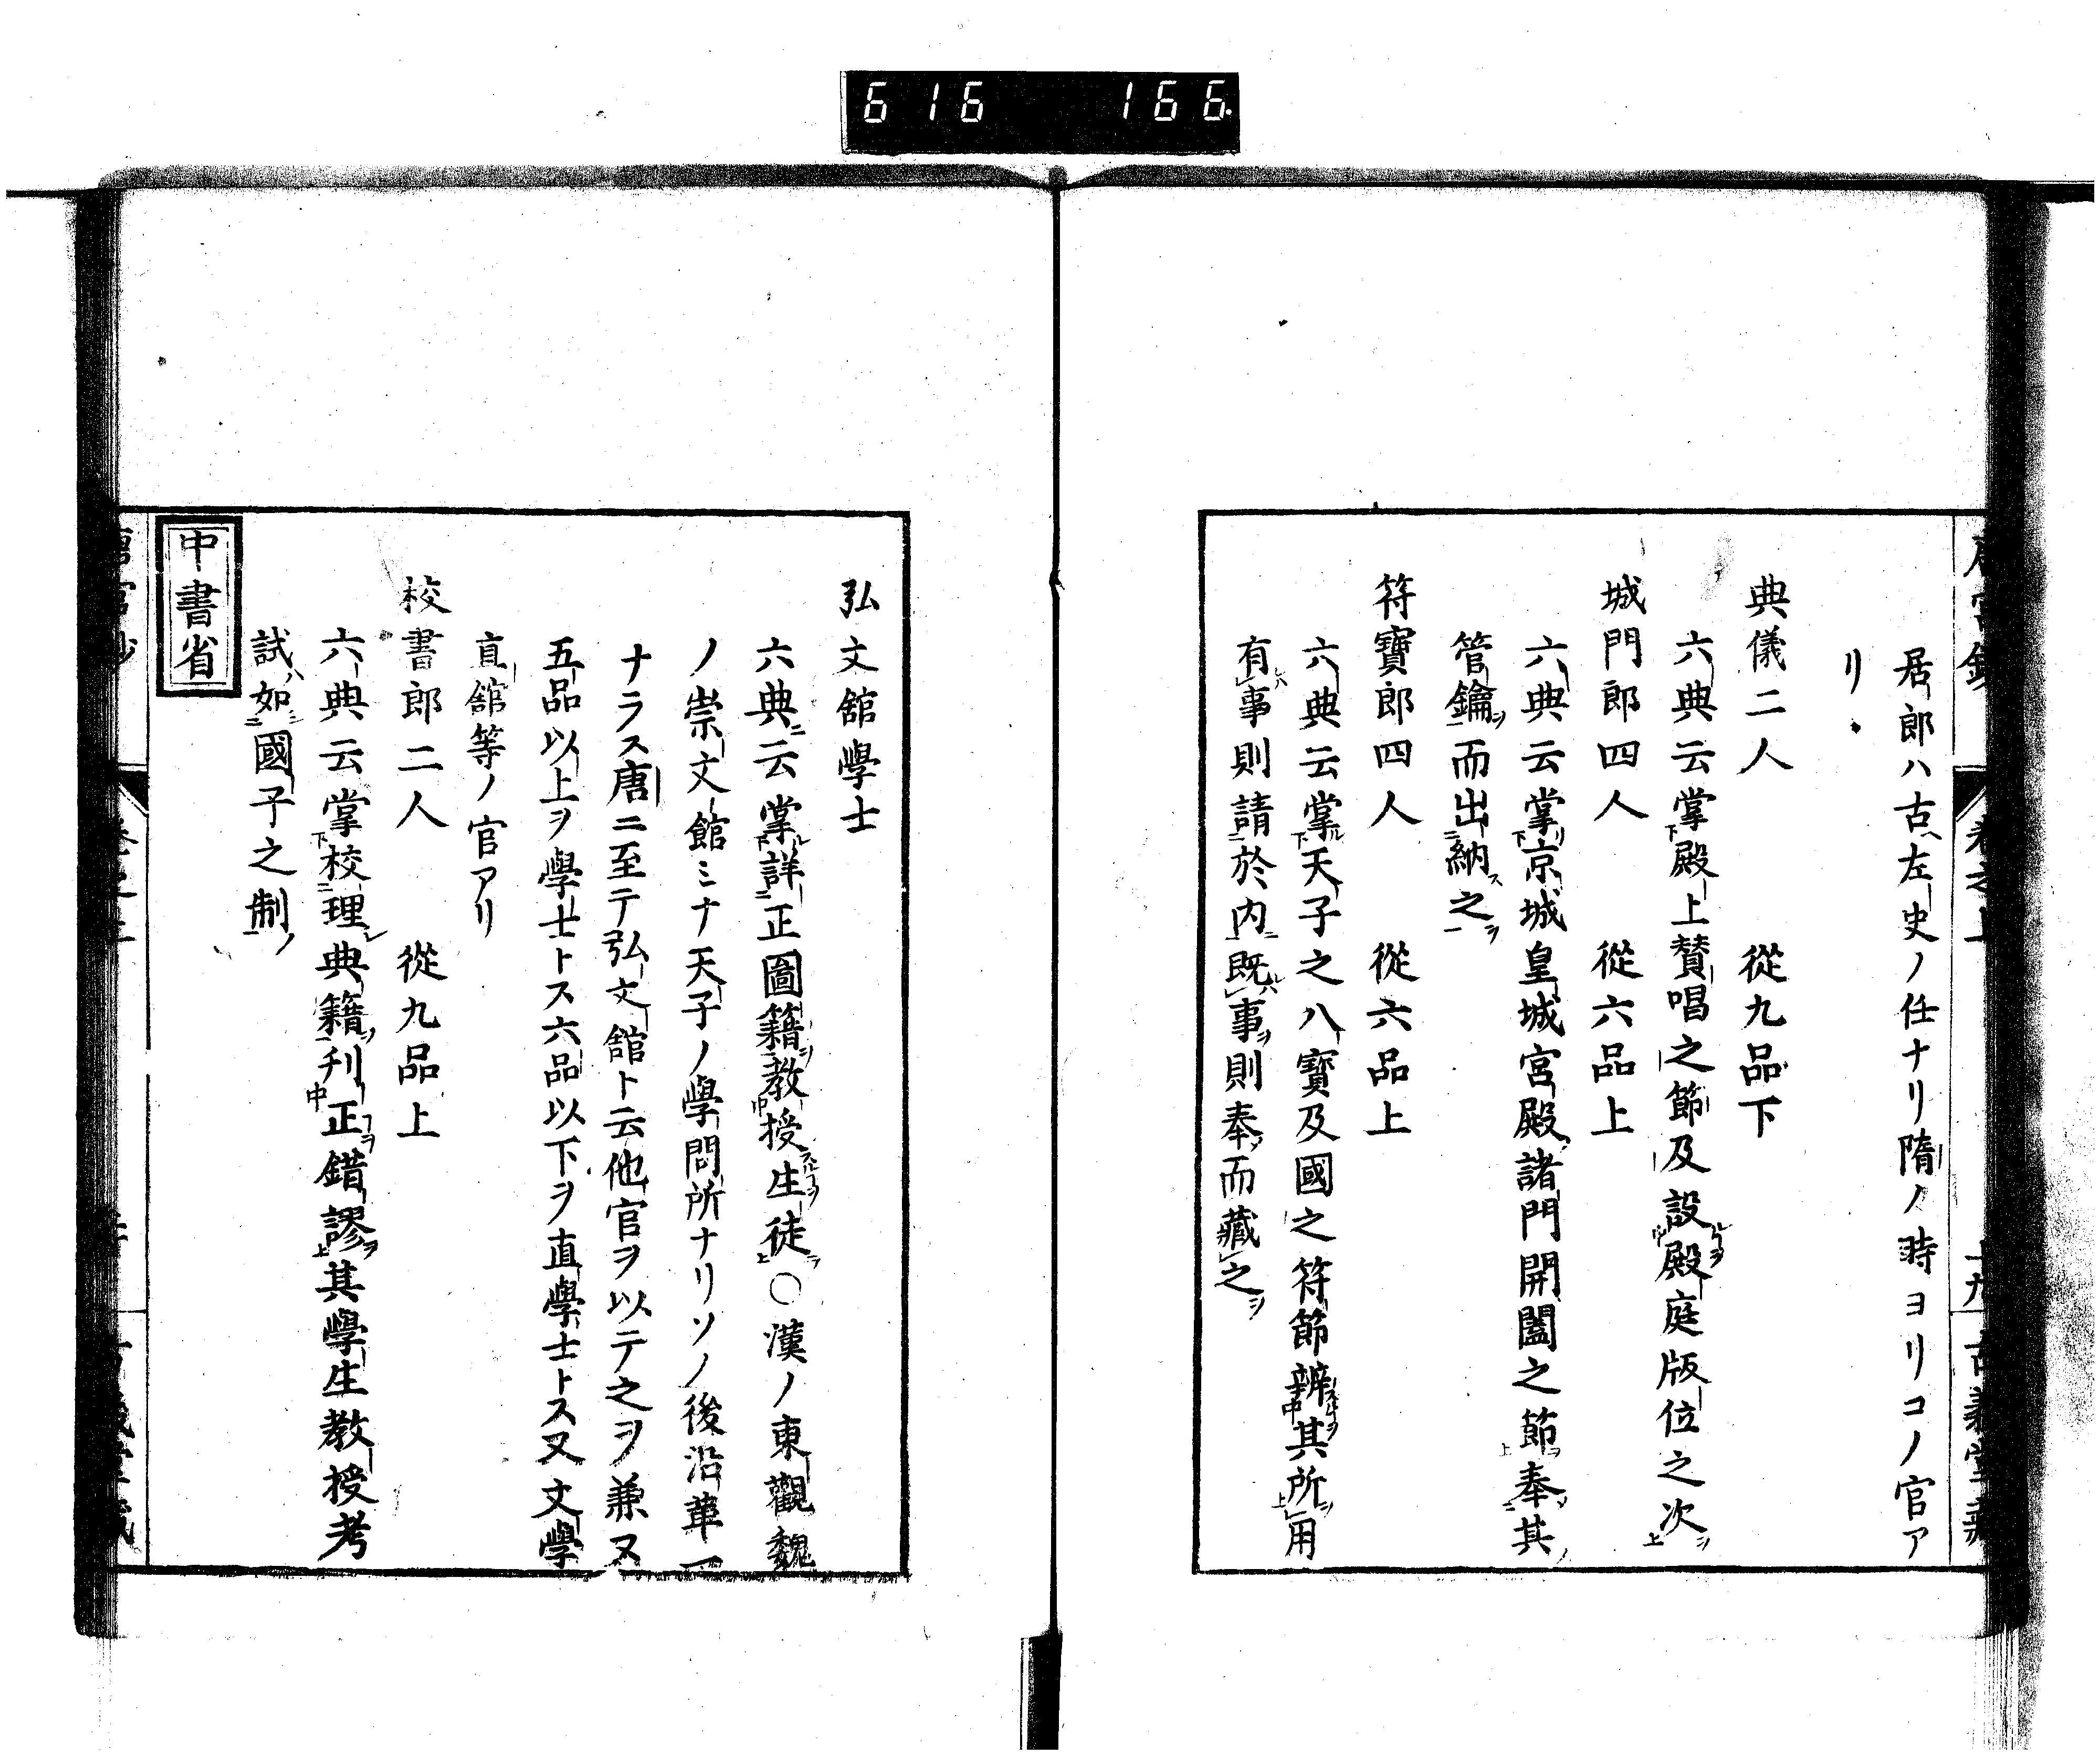 616 166
居郎ハ古ヘ左史ノ任ナリ隋ノ時ヨリコノ官ア
リ
典儀二人 從九品下
六典云掌殿上賛唱之節及設殿庭版位之次
城門郎四人 從六品上
六典云掌京城皇城宮殿諸門開闔之節奉其
管鑰而出納之
符寶郎四人 從六品上
六典云掌天子之八寶及國之符節辨其所用
有事則請於内既事則奉而藏之
弘文舘學士
六典云掌詳正圖籍教授生徒○漢ノ東觀魏
ノ崇文館ミナ天子ノ學問所ナリソノ後沿革一
ナラス唐ニ至テ弘文舘ト云他官ヲ以テ之ヲ兼又
五品以上ヲ學士トス六品以下ヲ直學士トス又文學
直舘等ノ官アリ
校書郎二人 從九品上
六典云掌校理典籍刊正錯謬其學生教授考
試如國子之制
中書省